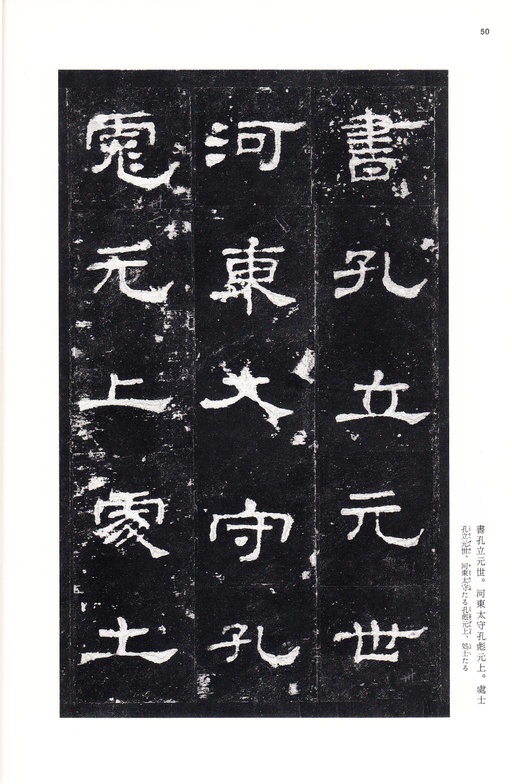 50
書孔立元世
河東大守孔
彪元上處土
書孔立元世。河東太守孔彪元上。處士
孔立元世、河東太守たる孔彪元上、処士たる